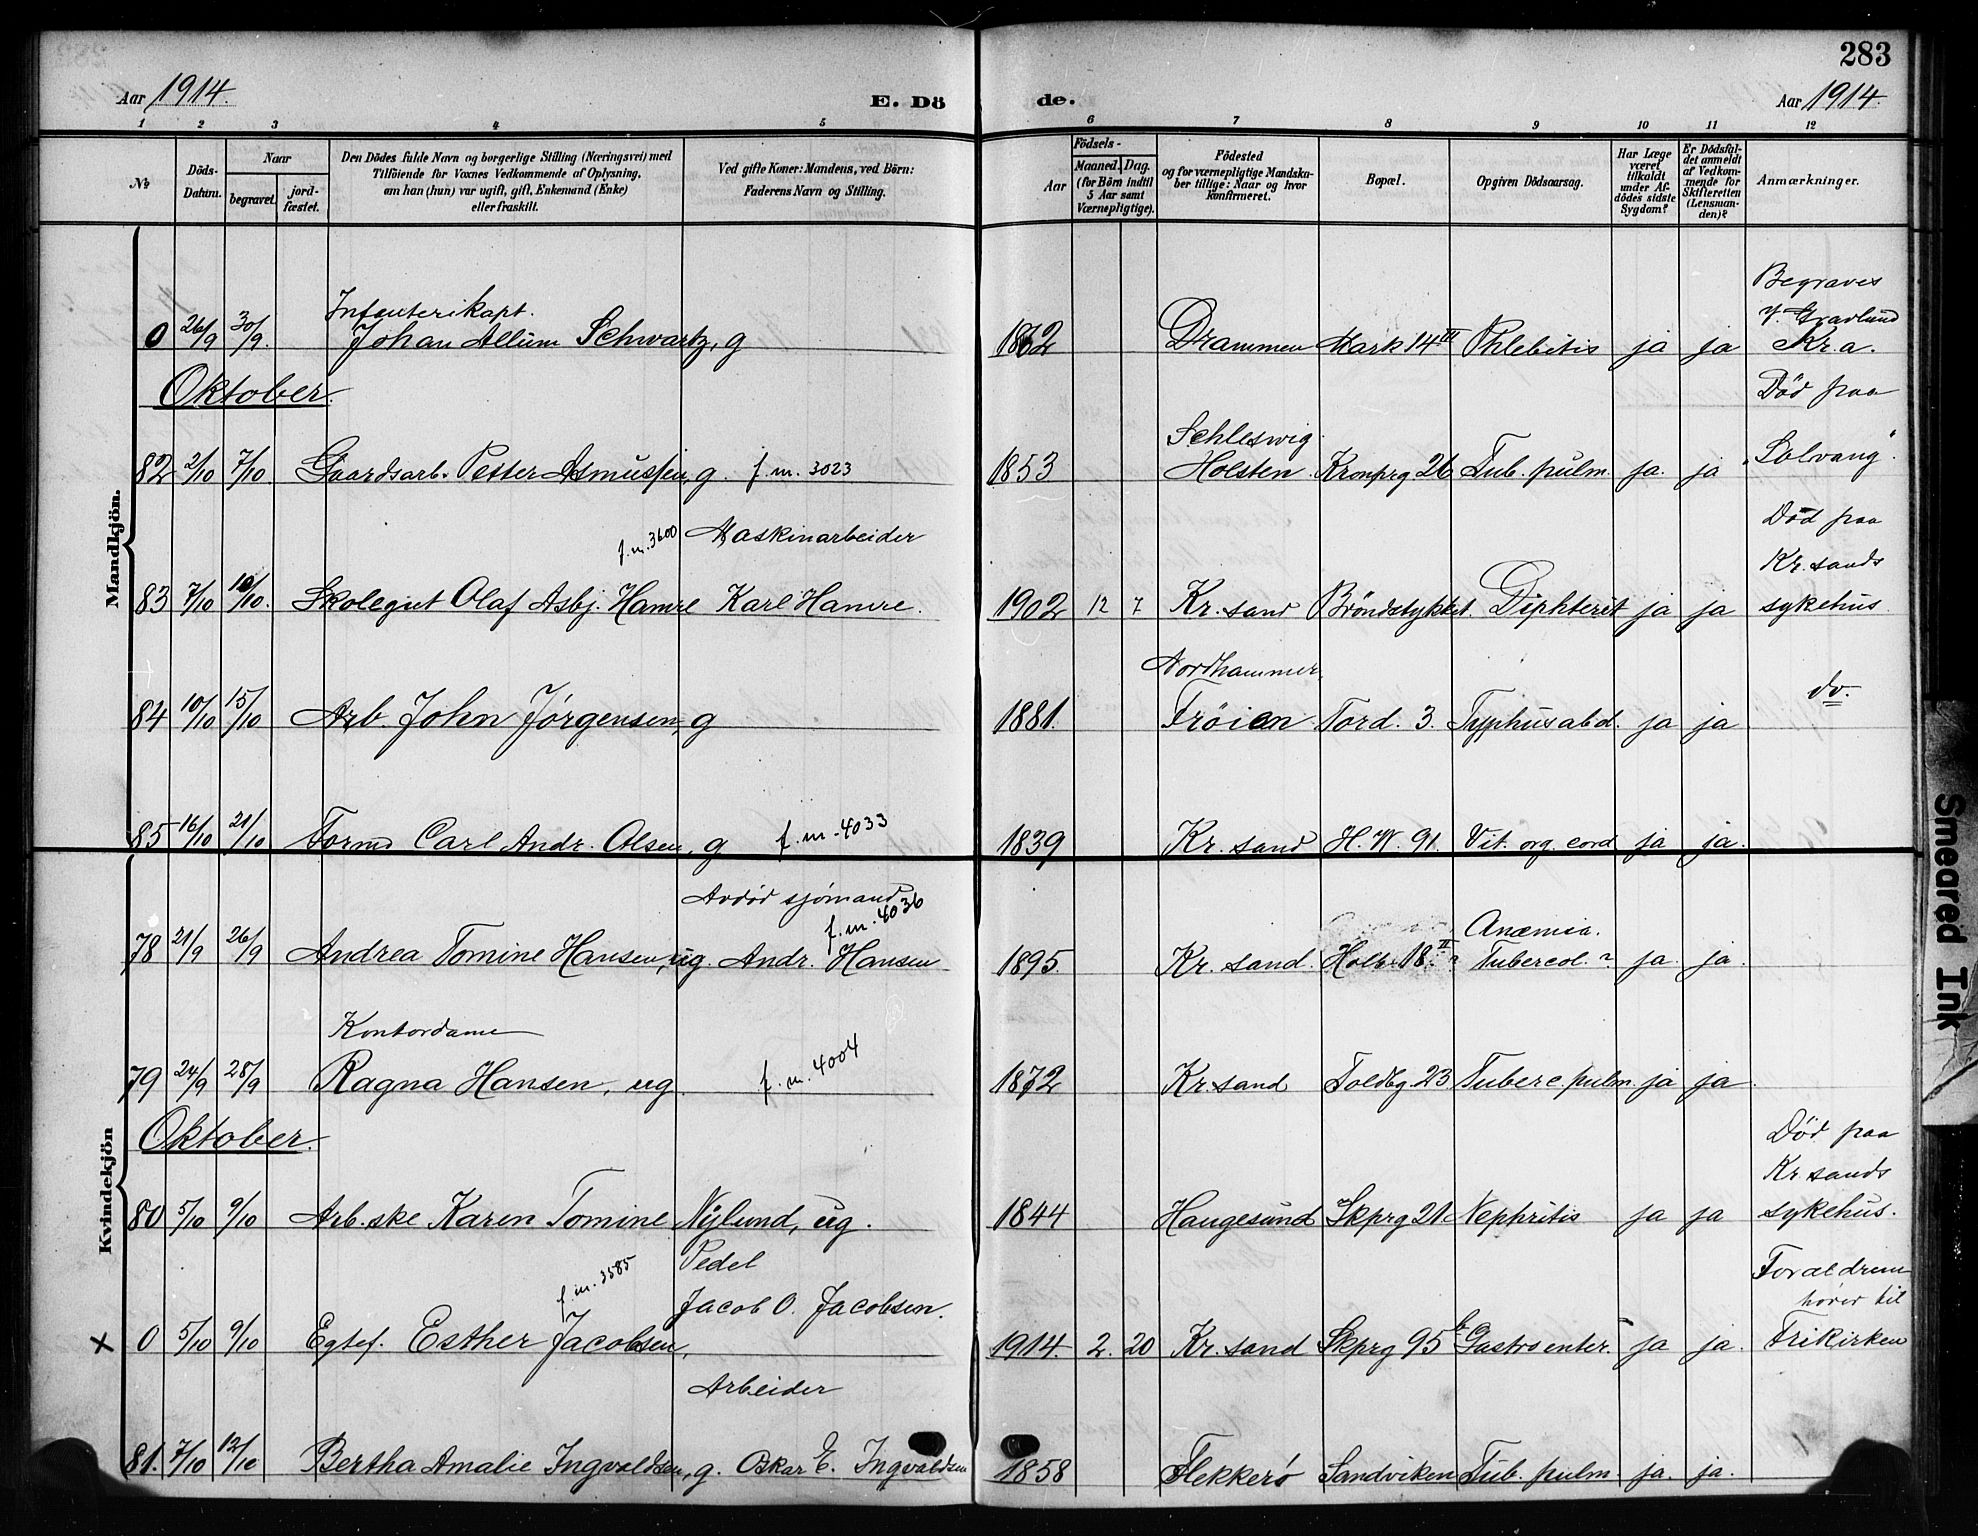 283
Aar 1914.
E. Dö
de.
Aar 1914.
1 2 3 4 5 6 7 8 9 10 11 12
№
Döds-Datum.
Naar
begravet.
jord-fæstet.
Den Dödes fulde Navn og borgerlige Stilling (Næringsvei) med
Tilföiende for Voxnes Vedkommende af Oplysning,
om han (hun) var ugift, gift, Enkemand (Enke)
eller fraskilt.
Ved gifte Koner: Mandens, ved Börn:
Faderens Navn og Stilling.
Födsels-
Aar
Maaned. Dag.
(for Börn indtil
5 Aar samt
Værnepligtige).
Födested
og for værnepligtige Mandska-
ber tillige: Naar og hvor
konfirmeret.
Bopæl.
Opgiven Dödsaarsag.
Har Læge
været
tilkaldt
under Af-
dödes sidste
Sygdom?
Er Dödsfal-
det anmeldt
af Vedkom-
mende for
Skifteretten
(Lensman-
den)?
Anmærkninger.
Mandkjön.
Begraves
V. Gravlund
Infanterikapt.
0 26/9 30/9 Johan Allum Schwartz, g 1862 Drammen Mark 14 III Phlebitis ja ja Kr.a.
Oktober.
Död paa
Schleswig
82 2/10 7/10 Gaardsarb. Petter Asmussen, g. f.m. 3023 1853 Holsten Kronprg 26 Tub. pulm. ja. ja „Solvang".
Död paa
f.m. 3600 Maskinarbeider Kr.sands
83 7/10 10/10. Skolegut Olaf Asbj. Hamre Karl Hamre. 1902 12 7 Kr. sand Bröndstykket. Diphterit ja ja sykehus
Nordhammer,
84 10/10 15/10 Arb. John Jörgensen, g 1881. Fröien Tord. 3. Typhus abd. ja ja do.
85 16/10 21/10 Formd Carl Andr. Olsen, g f.m. 4033 1839 Kr. sand H. W. 91. Vit. org. cord ja ja.
Kvindekjön
Avdöd sjömand Anæmia.
f.m. 4036
78 21/9 26/9 Andrea Tomine Hansen, ug. Andr. Hansen 1895. Kr. sand. Holb. 18. II Tubercol. ? ja. ja.
Kontordame
79 24/9 28/9 Ragna Hansen, ug. f.m. 4004 1872 Kr. sand Toldbg. 23 Tuberc. pulm. ja ja.
Oktober.
Död paa
Kr. sands
80 5/10 9/10 Arb.ske Karen Tomine Nylund, ug. 1844 Haugesund Skprg 21 Nephritis ja ja sykehus.
Pedel Forældrene
f.m. 3585 Jacob O. Jacobsen. hörer til
× 0 5/10 9/10 Egtef. Esther Jacobsen, 1914. 2. 20 Kr. sand Skprg 95 Gastroenter. ja ja. Frikirken
Arbeider
81. 7/10 12/10 Bertha Amalie Ingvaldsen, g. Oskar E. Ingvaldsen 1858 Flekkerö Sandviken Tub. pulm. ja. ja.
Smeared Ink